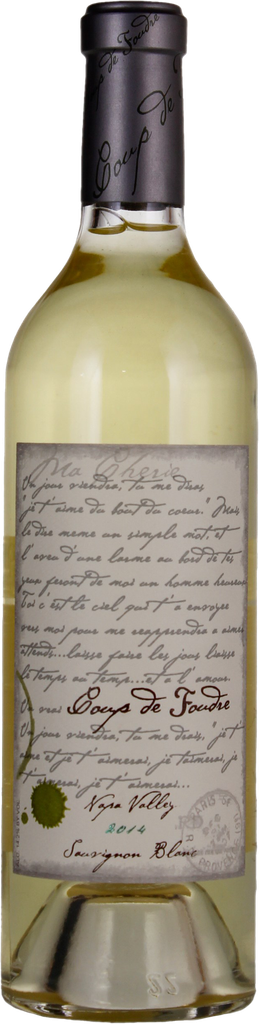 Coup de Foudre
Coup de
Ma Cherie
Un jour viendra, tu me diras
"je t'aime du bout du coeur." Mais
le dire meme un simple mot, et
l'aveu d'une larme au bord de tes
yeux feront de moi un homme heureux
Toi c'est le ciel qui t'a envoyer
vers moi pour me reapprendre a aimer
attends...laisse faire les jours laisse
le temps au temps...et a l'amour.
Un vrai Coup de Foudre
Un jour viendra, tu me dirais, "je t'
aime et je t'aimerai, je t'aimerai, je
t'aimerai, je t'aimerai...
Napa Valley
2014
Sauvignon Blanc
PARIS